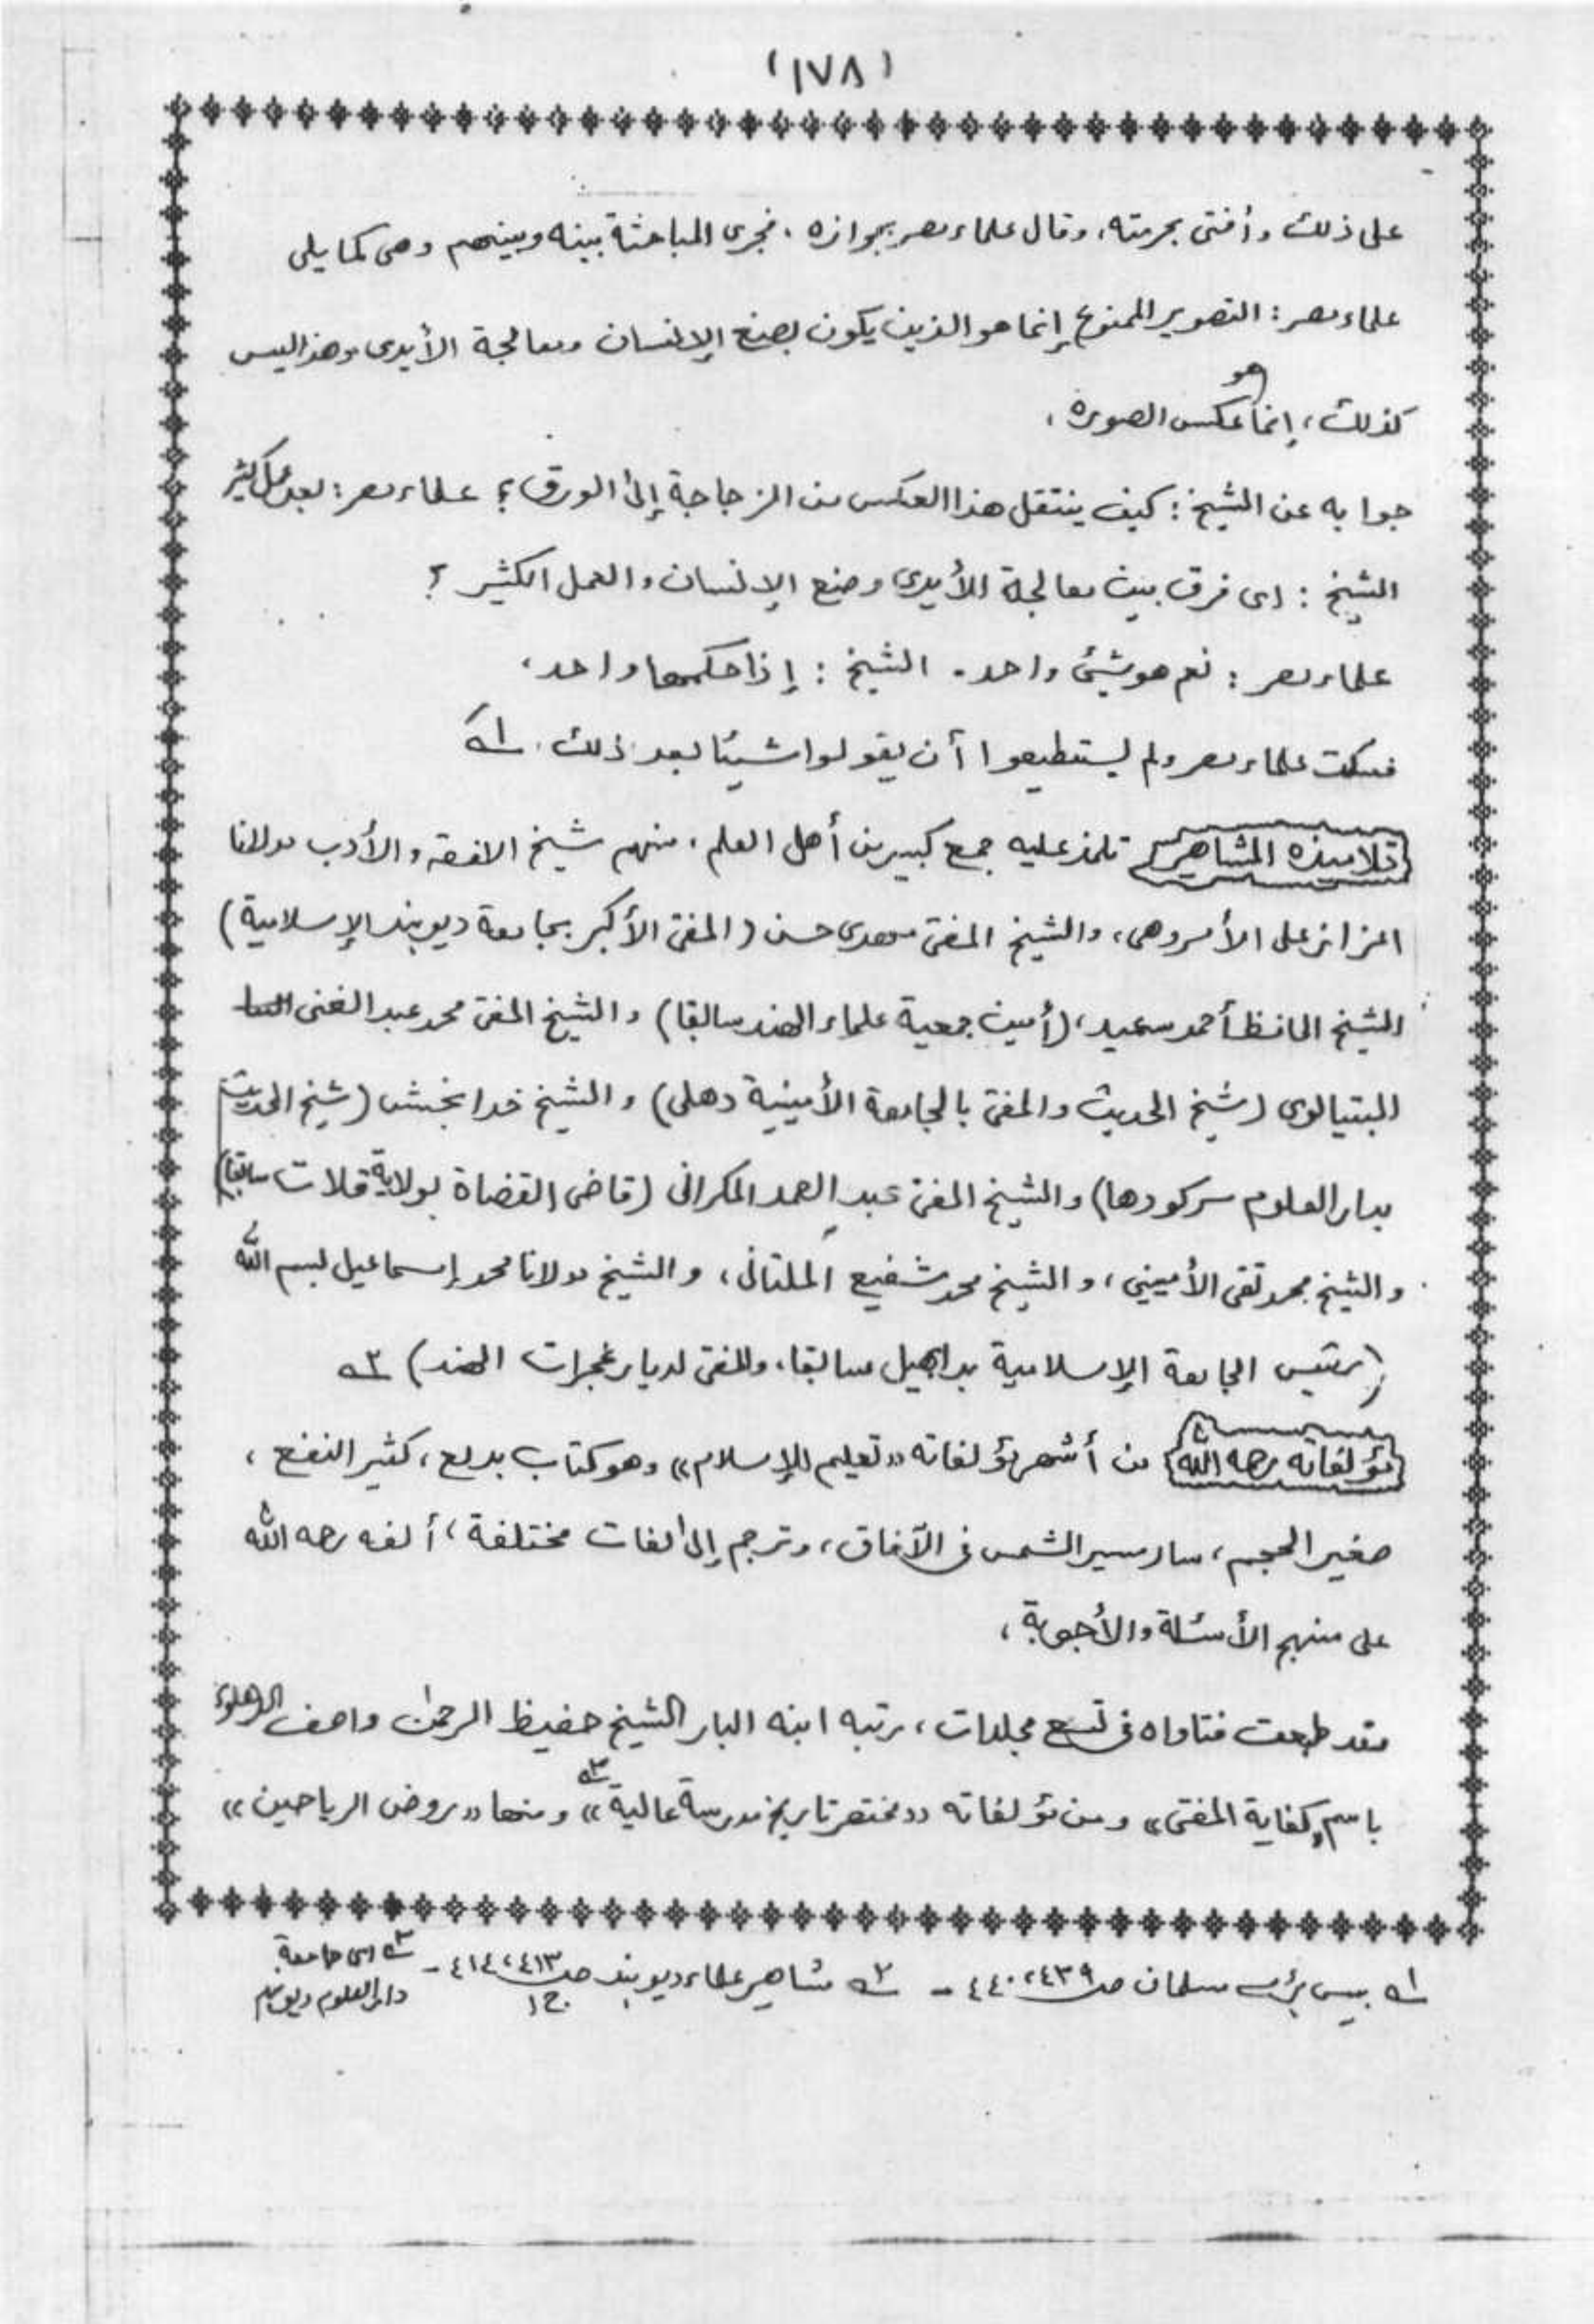 (١٧٨)
على ذلك وأفتى بحرمته، وقال علماء مصر بجوازه، فجرى المباحثة بينه وبينهم وهى كما يلى
علماء مصر: التصوير الممنوع إنما هو الذين يكون بصنع الإنسان ومعالجة الأيدى وهذا ليس
كذلك، إنما هو عكس الصورة،
جوابه عن الشيخ: كيف ينتقل هذا العكس من الزجاجة إلى الورق؟ علماء مصر: بعد عمل كثير
الشيخ: اى فرق بين معالجة الأيدى وصنع الإنسان والعمل الكثير؟
علماء مصر: نعم هو شيئ واحد. الشيخ: إذا حكمهما واحد،
فسكت علماء مصر ولم يستطيعوا أن يقولوا شيئا بعد ذلك. ١ه
تلاميذه المشاهير تلمذ عليه جمع كبير من أهل العلم، منهم شيخ الفقه والأدب مولانا
اعزاز على الأمروهى، والشيخ المفتى مهدى حسن (المفتى الأكبر بجامعة ديوبند الإسلامية)
الشيخ الحافظ أحمد سعيد، (أمين جمعية علماء الهند سابقا) والشيخ المفتى محمد عبد الغنى
البتيالوى (شيخ الحديث والمفتى بالجامعة الأمينية دهلى) والشيخ خدا بخش (شيخ الحديث
بدار العلوم سركودها) والشيخ المفتى عبد الصمد المكرانى (قاضى القضاة بولاية قلات سابقا)
والشيخ محمد تقى الأمينى، والشيخ محمد شفيع الملتانى، والشيخ مولانا محمد إسماعيل بسم الله
(رئيس الجامعة الإسلامية بدابهيل سابقا، والمفتى لديار غجرات الهند) ٢ه
مؤلفاته رحمه الله من أشهر مؤلفاته «تعليم الإسلام» وهو كتاب بديع، كثير النفع،
صغير الحجم، سار مسير الشمس فى الآفاق، وترجم إلى لغات مختلفة، ألفه رحمه الله
على منهج الأسئلة والأجوبة،
وقد طبعت فتاواه فى تسع مجلدات، رتبه ابنه البار الشيخ حفيظ الرحمٰن واصف الدهلوى
باسم «كفاية المفتى» ومن مؤلفاته «مختصر تاريخ مدرسة عالية» ٣ه ومنها «روض الرياحين»
١ه بيس بڑے مسلمان صـ ٤٣٩، ٤٤٠ - ٢ه مشاهير علماء ديوبند صـ ٤١٣، ٤١٤ ج ١ - ٣ه اى جامعة
دار العلوم ديوبند